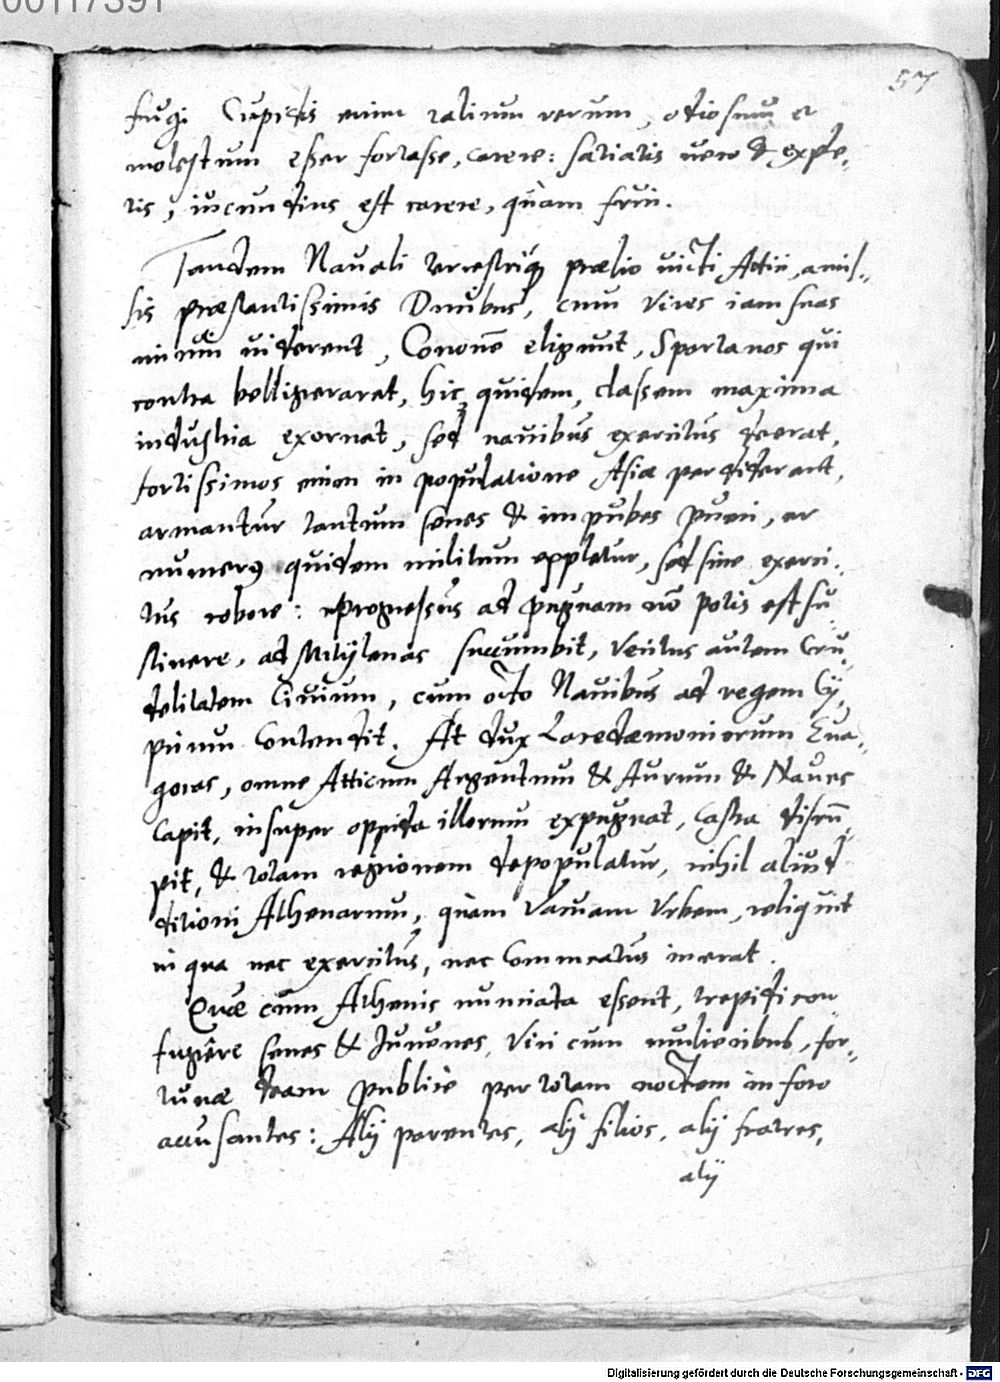 00117391
57
fugi Cupidis enim talium rerum, otiosum et
molestum esset fortasse, carere: satiatis uero & exple-
tis, iucundius est carere, quàm frui.
Tandem Nauali terrestriq; prælio uicti Attici, amis-
sis præstantissimis Ducibus, cum Vires iam suas
minui uiderent, Cononē eligunt, Spartanos qui
contra belligeraret, hic quidem, classem maxima
industria exornat, sed nauibus exercitus deerat,
fortissimos enim in populatione Asiæ perdiderant,
armantur tantum senes & impubes pueri, et
numerus quidem militum eppletur, sed sine exerci-
tus robore: progressus ad pugnam nō potis est su-
stinere, ad Mitylenas succumbit, Veritus autem Cru-
delitatem Ciuium, cum octo Nauibus ad regem Cy-
prium Contendit. At dux Lacedæmoniorum Eua-
goras, omne Atticum Argentum & Aurum & Naues
Capit, insuper oppida illorum expugnat, Castra disrū-
pit, & totam regionem depopulatur, nihil aliud
ditioni Athenarum, quàm Vacuam Vrbem, reliquit
in qua nec exercitus, nec Commeatus inerat.
Quæ cùm Athenis nunciata essent, trepidi con-
fugiêre senes & Iuuenes, Viri cum mulieribus, for-
tunæ deam publicè per totam noctem in foro
accusantes: Alij parentes, alij filios, alij fratres,
alij
Digitalisierung gefördert durch die Deutsche Forschungsgemeinschaft - DFG